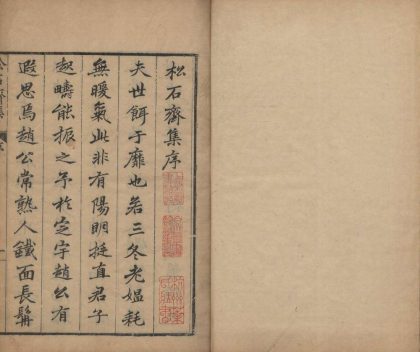 松石齋集序
夫世餌于靡也若三冬老媪耗
無暖氣此非有陽明挺直君子
起疇能振之予於定宇趙公有
遐思焉趙公常熟人鐵面長髯